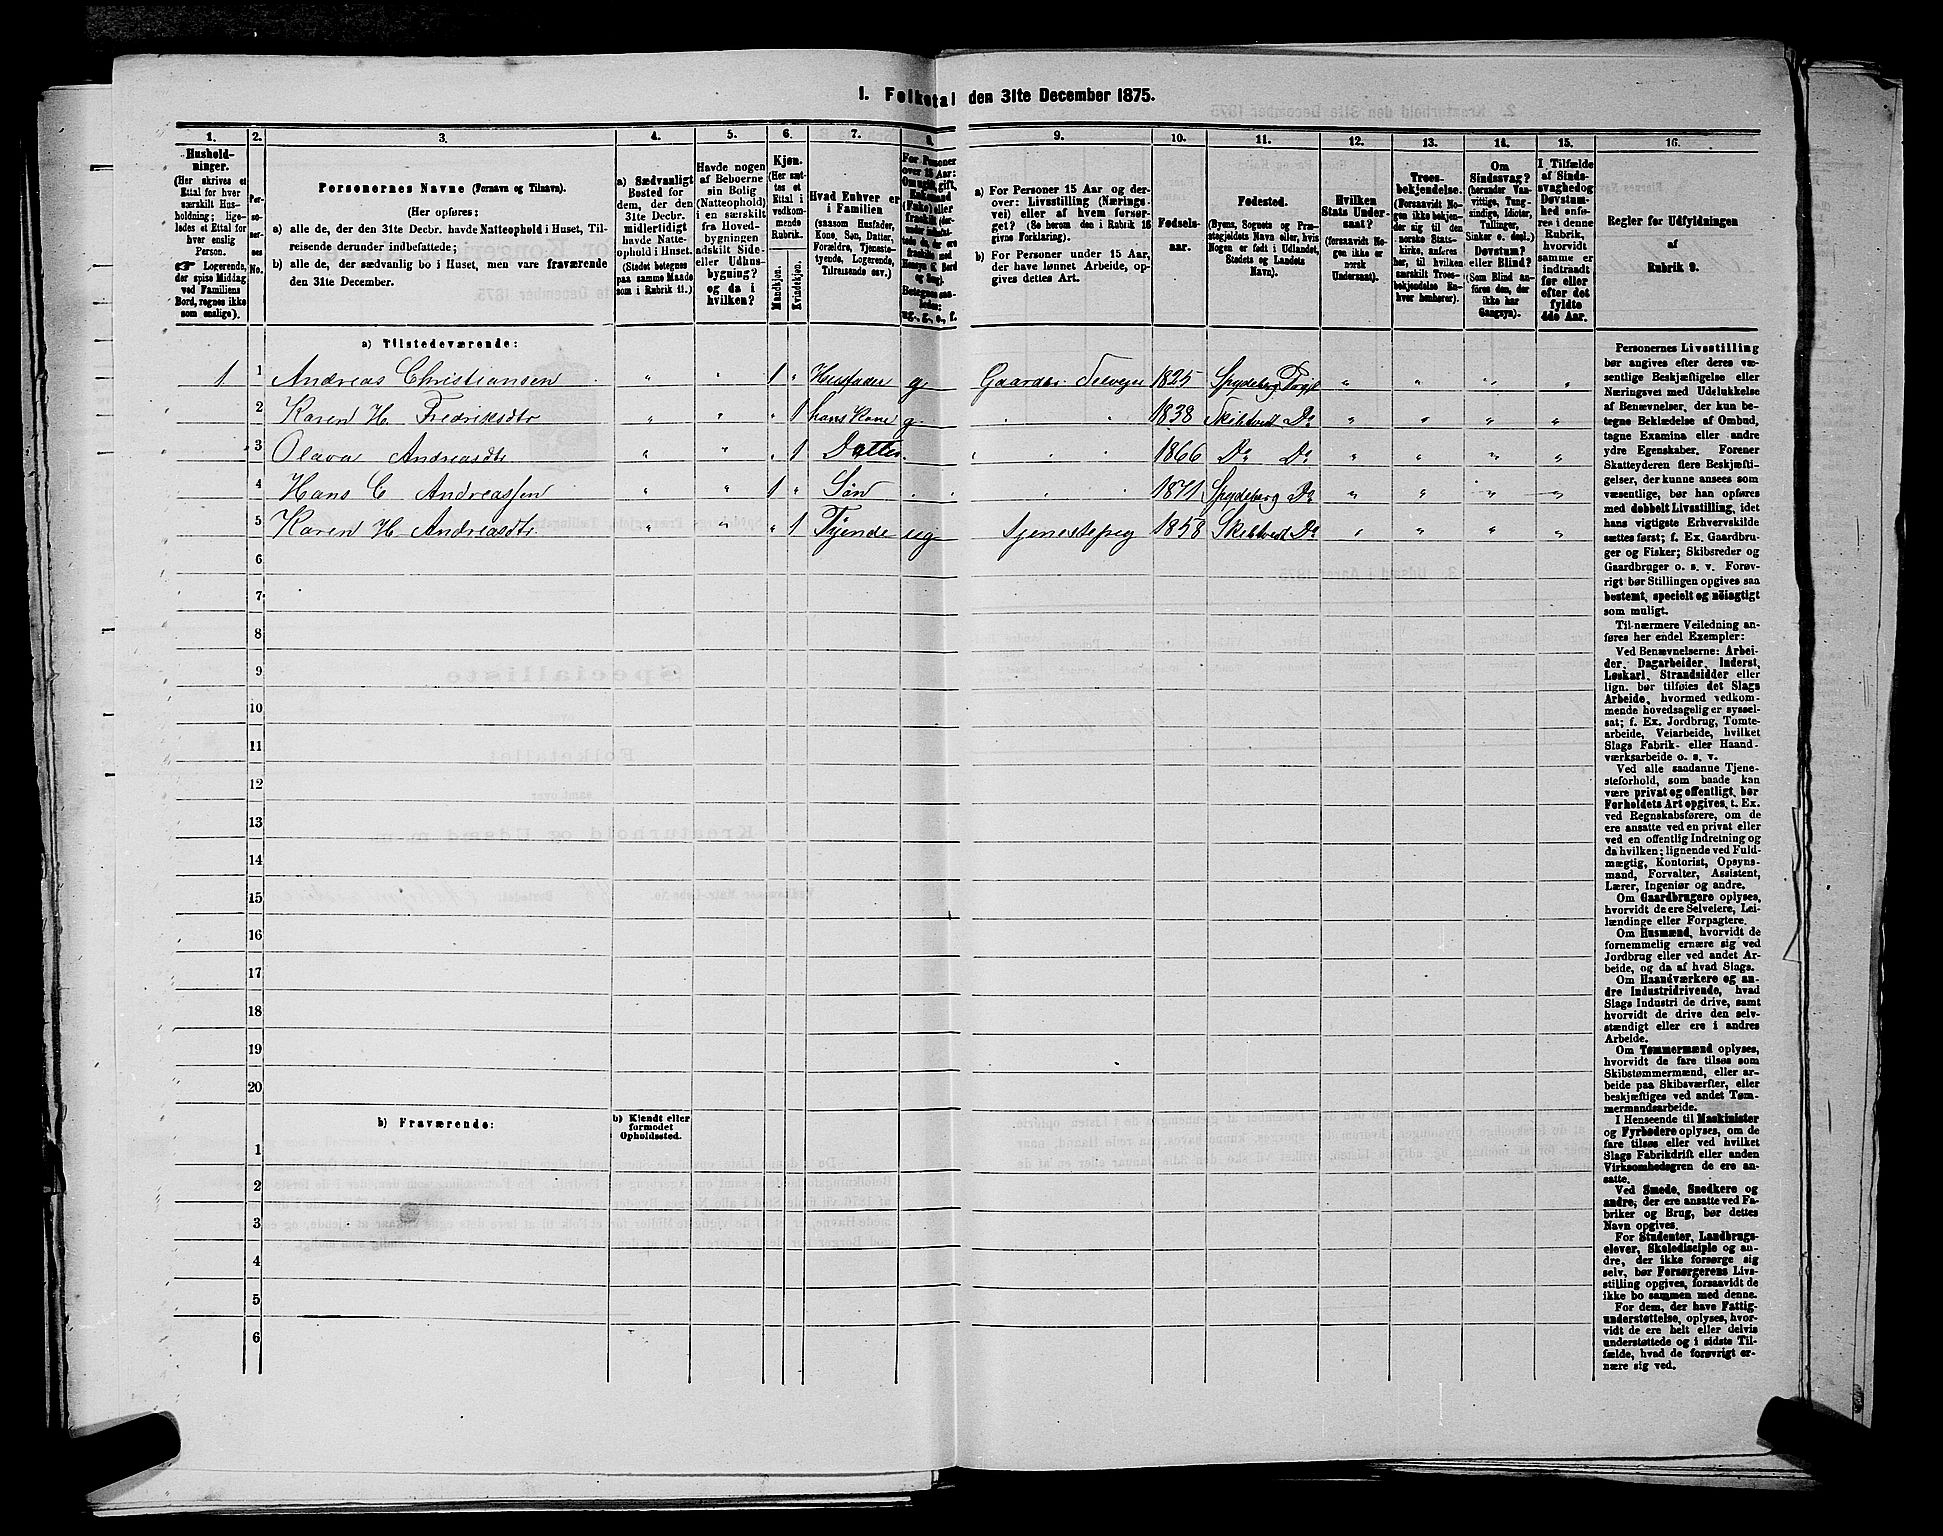 1. Folketal den 31te December 1875.
1. 2. 3. 4. 5. 6. 7. 8. 9. 10. 11. 12. 13. 14. 15. 16.
Hushold-
ninger.
(Her skrives et
Ettal for hver
særskilt Hus-
holdning; lige-
ledes et Ettal for
hver enslig
Person.
☞ Logerende,
der spise Middag
ved Familiens
Bord, regnes ikke
som enslige).
Per-
soner-
nes
No.
Personernes Navne (Fornavn og Tilnavn).
(Her opføres:
a) alle de, der den 31te Decbr. havde Natteophold i Huset, Til-
reisende derunder indbefattede;
b) alle de, der sædvanlig bo i Huset, men vare fraværende
den 31te December.
a) Sædvanligt
Bosted for
dem, der den
31te Decbr.
midlertidigt
havde Natte-
ophold i Huset.
(Stedet betegnes
paa samme Maade
som i Rubrik 11.)
Havde nogen
af Beboerne
sin Bolig
(Natteophold)
i en særskilt
fra Hoved-
bygningen
adskilt Side-
eller Udhus-
bygning?
og da i
hvilken?
Kjøn.
(Her sæt-
tes et
Ettal i
vedkom-
mende
Rubrik.
Mandkjøn.
Kvindekjøn.
Hvad Enhver er
i Familien
(saasom Husfader,
Kone, Søn, Datter,
Forældre, Tjeneste-
tyende, Logerende,
Tilreisende osv.)
For Personer
over 15 Aar:
ug., g., e., f.
a) For Personer 15 Aar og der-
over: Livsstilling (Nærings-
vei) eller af hvem forsør-
get? (Se herom den i Rubrik 16
givne Forklaring).
b) For Personer under 15 Aar,
der have lønnet Arbeide, op-
gives dettes Art.
Fødsels-
aar.
Fødested.
(Byens, Sognets og Præ-
stegjeldets Navn eller, hvis
Nogen er født i Udlandet,
Stedets og Landets
Navn).
Hvilken
Stats Under-
saat?
(forsaavidt No-
gen ikke er
norsk
Undersaat).
Troes-
bekjendelse.
(Forsaavidt No-
gen ikke bekjen-
der sig til den
norske Stats-
kirke, anføres
her, til hvilken
særskilt Troes-
bekjendelse En-
hver henhører).
Om
Sindssvag?
(herunder Van-
vittige, Tung-
sindige, Idioter,
Tullinger,
Sinker o. desl.).
Døvstum?
eller Blind?
(Som Blind an-
føres den, der
ikke har
Gangsyn).
I Tilfælde
af Sinds-
svaghed og
Døvstum-
hed anfø-
res i denne
Rubrik,
hvorvidt
samme er
indtraadt
før eller
efter det
fyldte
4de Aar.
Regler for Udfyldningen
af
Rubrik 9.
a) Tilstedeværende:
1 1 Andreas Christiansen " " 1 " Husfader g Gaardbr. Selveier 1825 Spydeberg Pægt " " " "
2 Karen H. Fredriksdtr " " " 1 hans Kone g. " " 1838 Skibtvedt Do " " " "
3 Olava Andreasdtr " " " 1 Datter " " 1866 Do Do " " " "
4 Hans C. Andreassen " " 1 " Søn " " 1871 Spydeberg Do " " " "
5 Karen H. Andreasdtr. " " " 1 Tyende ug Tjenestepig 1858 Skibtvedt Do " " " "
6
7
8
9
10
11
12
13
14
15
16
17
18
19
20
b) Fraværende:
b) Kjendt eller
formodet
Opholdssted.
1
2
3
4
5
6
Personernes Livsstilling
bør angives efter deres væ-
sentlige Beskjæftigelse eller
Næringsvei med Udelukkelse
af Benævnelser, der kun be-
tegne Beklædelse af Ombud,
tagne Examina eller andre
ydre Egenskaber. Forener
Skatteyderen flere Beskjæfti-
gelser, der kunne ansees som
væsentlige, bør han opføres
med dobbelt Livsstilling, idet
hans vigtigste Erhvervskilde
sættes først; f. Ex. Gaardbru-
ger og Fisker; Skibsreder og
Gaardbruger o. s. v. Forøv-
rigt bør Stillingen opgives saa
bestemt, specielt og nøiagtigt
som muligt.
Til nærmere Veiledning an-
føres her endel Exempler:
Ved Benævnelserne: Arbei-
der, Dagarbeider, Inderst,
Løskarl, Strandsidder eller
lign. bør tilføies det Slags
Arbeide, hvormed vedkom-
mende hovedsagelig er syssel-
sat; f. Ex. Jordbrug, Tomte-
arbeide, Veiarbeide, hvilket
Slags Fabrik- eller Haand-
værksarbeide o. s. v.
Ved alle saadanne Tjene-
steforhold, som baade kan
være privat og offentligt, bør
Forholdets Art opgives, t. Ex.
ved Regnskabsførere, om de
ere ansatte ved en privat eller
ved en offentlig Indretning og
da hvilken; lignende ved Fuld-
mægtig, Kontorist, Opsyns-
mand, Forvalter, Assistent,
Lærer, Ingeniør og andre.
Om Gaardbrugere oplyses,
hvorvidt de ere Selveiere, Lei-
lændinge eller Forpagtere.
Om Husmænd, hvorvidt de
fornemmelig ernære sig ved
Jordbrug eller ved andet Ar-
beide, og da af hvad Slags.
Om Haandværkere og an-
dre Industridrivende, hvad
Slags Industri de drive, samt
hvorvidt de drive den selv-
stændigt eller ere i andres
Arbeide.
Om Tømmermænd oplyses,
hvorvidt de fare tilsøs som
Skibstømmermænd, eller ar-
beide paa Skibsværfter, eller
beskjæftiges ved andet Tøm-
mermandsarbeide.
I Henseende til Maskinister
og Fyrbødere oplyses, om de
fare tilsøs eller ved hvilket
Slags Fabrikdrift eller anden
Virksomhedsgren de ere an-
satte.
Ved Smede, Snedkere og
andre, der ere ansatte ved Fa-
briker og Brug, bør dettes
Navn opgives.
For Studenter, Landbrugs-
elever, Skoledisciple og an-
dre, der ikke forsørge sig
selv, bør Forsørgerens Livs-
stilling opgives, forsaavidt de
ikke bo sammen med denne.
For dem, der have Fattig-
understøttelse, oplyses, hvor-
vidt de ere helt eller delvis
understøttede og i sidste Til-
fælde, hvad de forøvrigt er-
nære sig ved.